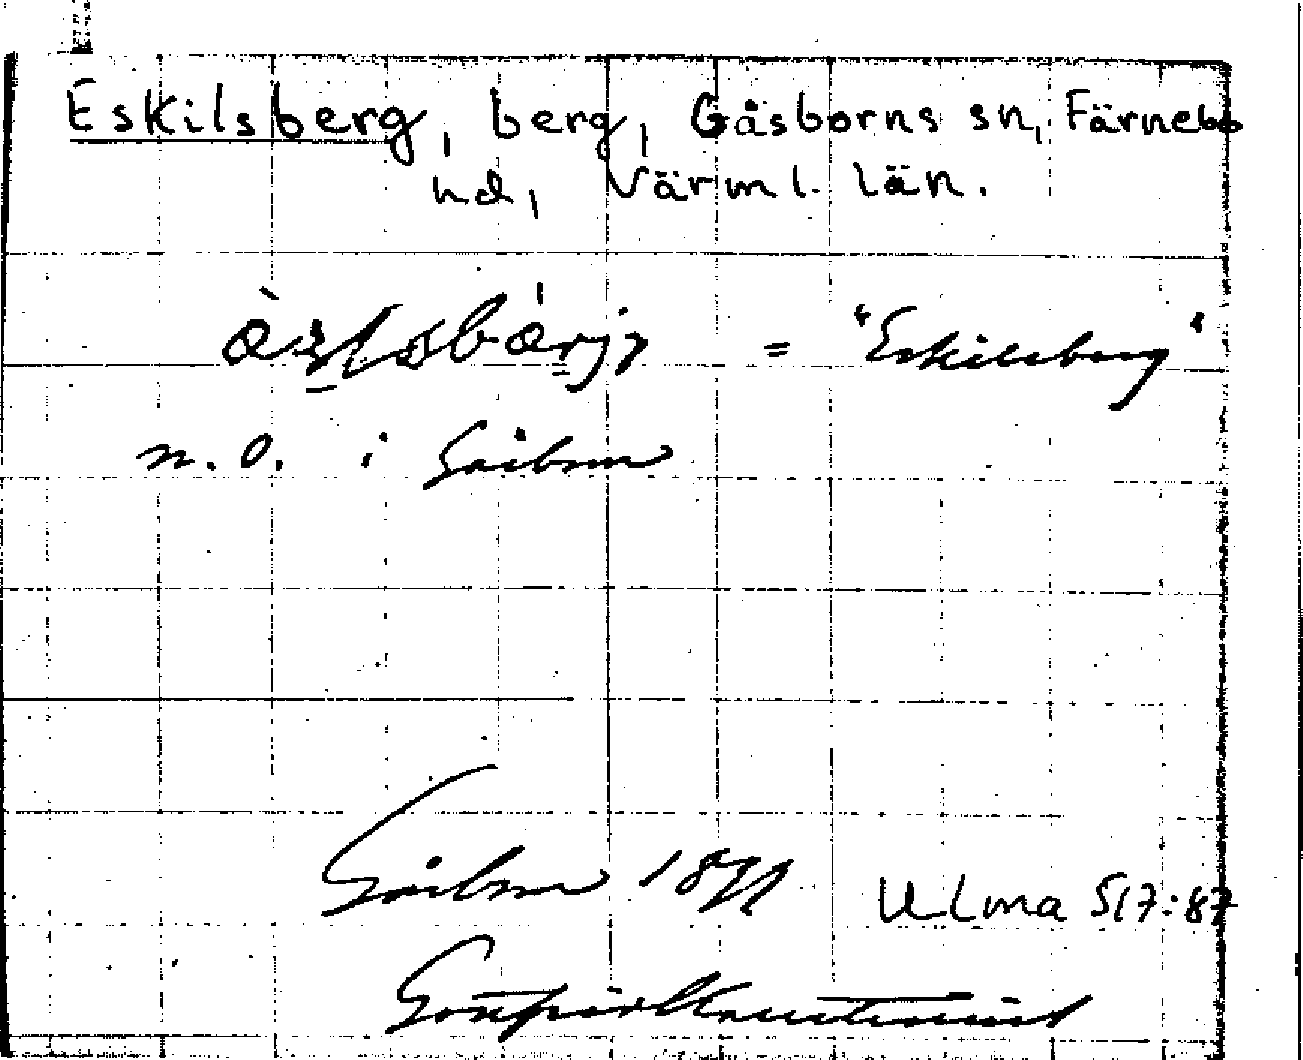 Eskilsberg, berg, Gåsborns sn, Färnebo
hd, Värml. län.
= "Eskilsberg"
n. O. i Gåsborn
Gåsborn 18
ULma 517:87